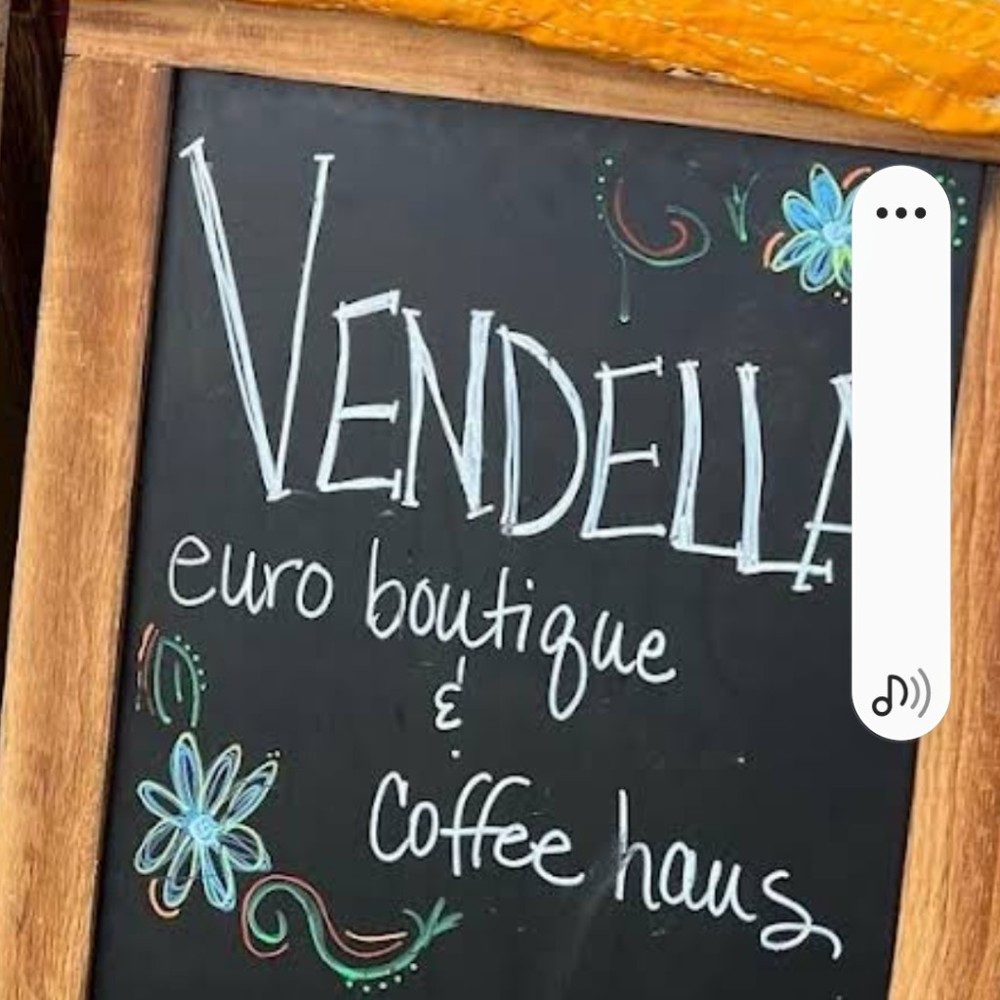 VENDELLA
euro boutique
&
coffee haus